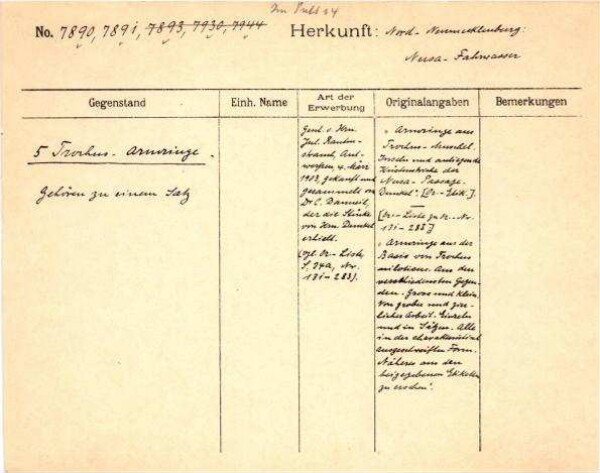 No. 7890, 7891, 7893, 7930, 7944
Herkunft: Nord-Neumecklenburg:
Nusa-Fahrwasser
Gegenstand
Einh. Name
Art der
Erwerbung
Originalangaben
Bemerkungen
5 Trochus-Armringe.
Gehören zu einem Satz
Jul.
werpen, 4. März
1908, gekauft und
gesammelt von
Dr. C.
der die Stücke
von Hrn. Dunkel
erhielt.
(vgl. Or-Liste,
S. 24a, Nr.
131-283).
"Armringe aus
Trochus-Muschel.
Inseln und anliegende
der
Nusa-Passage.
Dunkel". [Or.-Etik.].
[Or-Liste zu Or-Nr.
131-283]
"Armringe aus der
Basis von Trochus
niloticus. Aus den
verschiedensten Gegen-
den. Gross und klein.
Von grober und zier-
licher Arbeit. Einzeln
und in Sätzen. Alle
in der
ausgeschweiften Form.
Näheres aus den
beigegebenen Etiketten
zu ersehen".